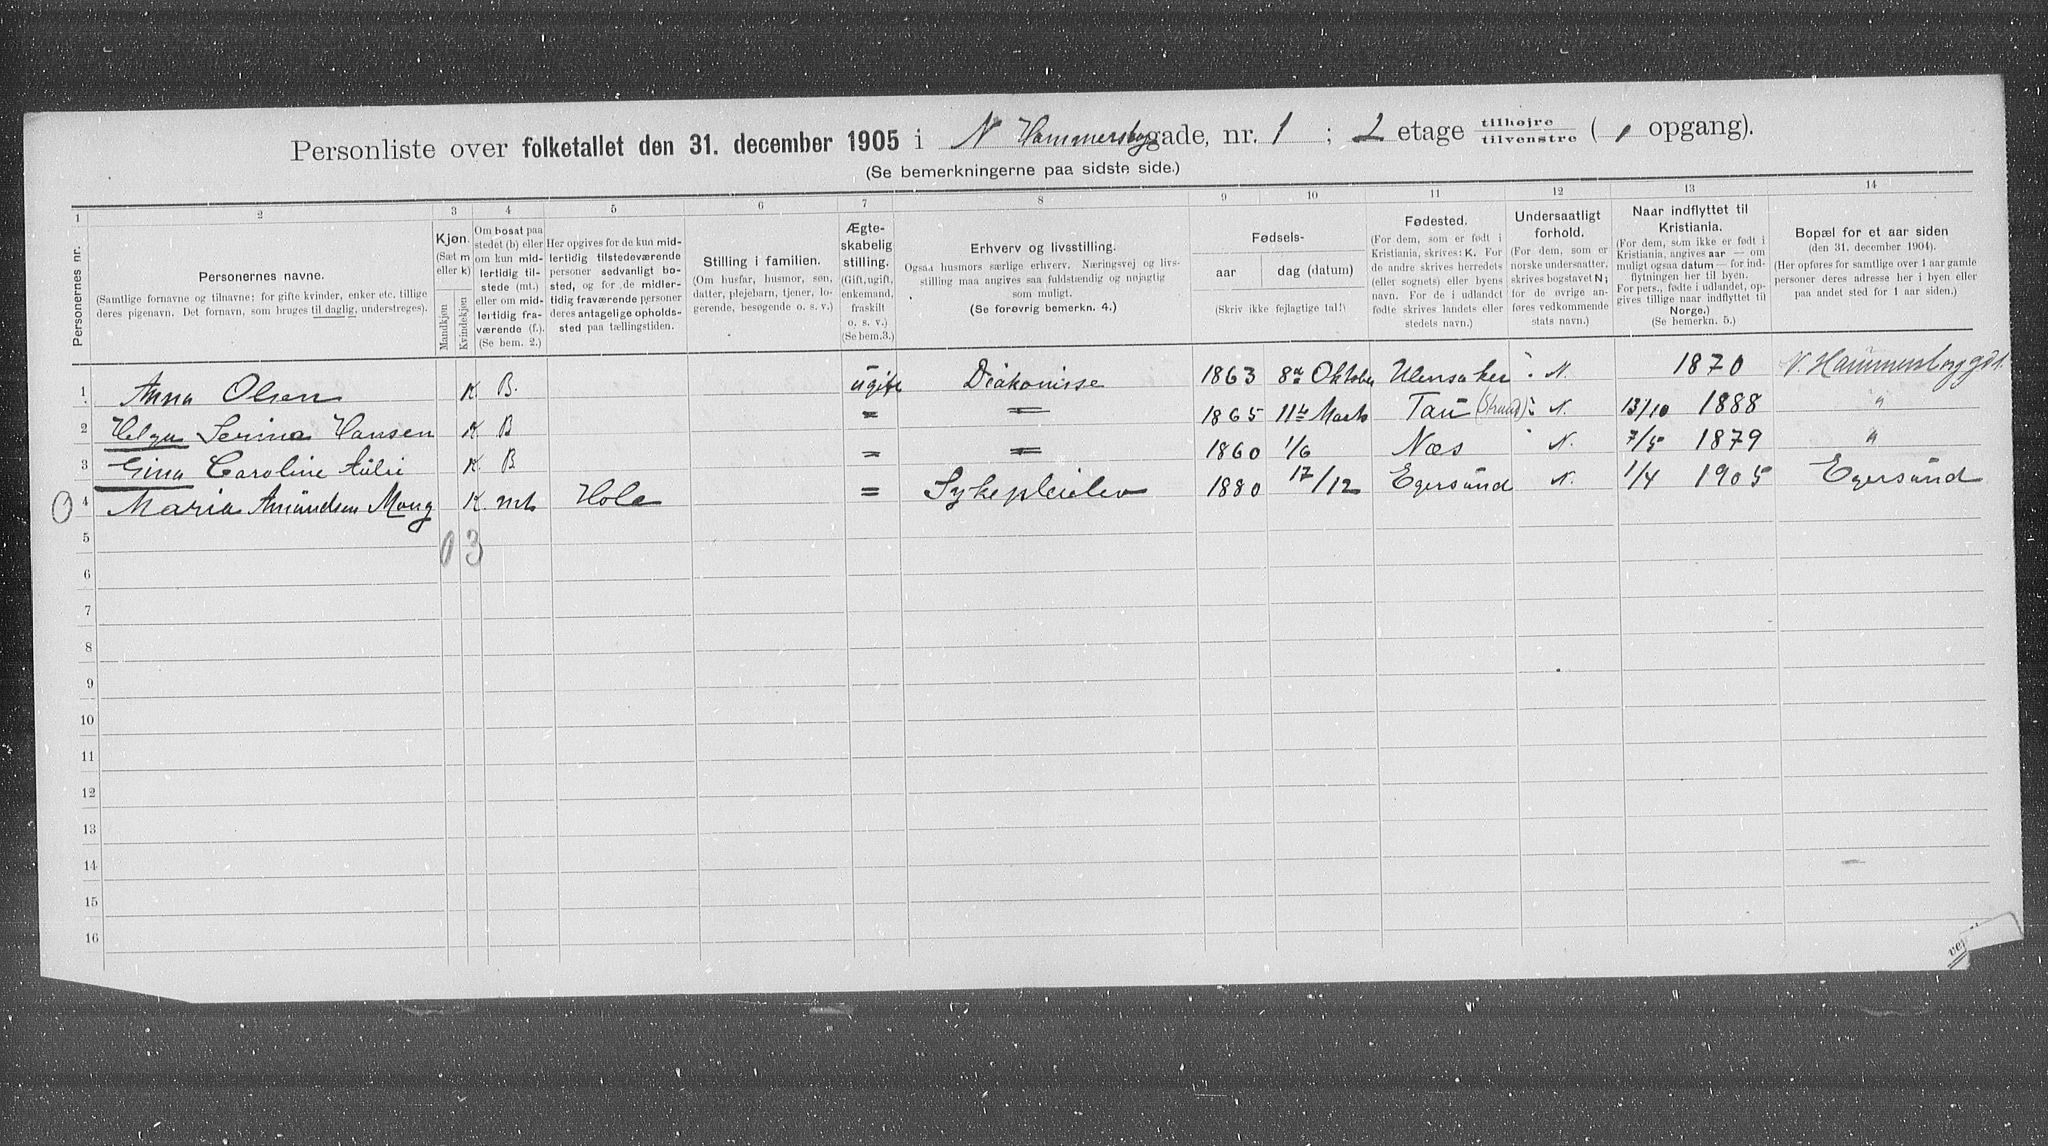 Personliste over folketallet den 31. december 1905 i N Hammersborggade, nr. 1 ; 2 etage tilhøjre tilvenstre ( , opgang).
(Se bemerkningerne paa sidste side.)
1 2 3 4 5 6 7 8 9 10 11 12 13 14
Personernes nr.
Personernes navne.
(Samtlige fornavne og tilnavne; for gifte kvinder, enker etc. tillige
deres pigenavn. Det fornavn, som bruges til daglig, understreges).
Kjøn.
(Sæt m
eller k)
Mandkjøn
Kvindekjøn
Om bosat paa
stedet (b) eller
om kun mid-
lertidig til-
stede (mt.)
eller om mid-
lertidig fra-
værende (f.).
(Se bem. 2.)
Her opgives for de kun mid-
lertidig tilstedeværende
personer sedvanligt bo-
sted, og for de midler-
tidig fraværende personer
deres antagelige opholds-
sted paa tællingstiden.
Stilling i familien.
(Om husfar, husmor, søn,
datter, plejebarn, tjener, lo-
gerende, besøgende o. s. v.)
Ægte-
skabelig
stilling.
(Gift, ugift,
enkemand,
fraskilt
o. s. v.)
(Se bem.3.)
Erhverv og livsstilling.
Ogsaa husmors særlige erhverv. Næringsvej og livs-
stilling maa angives saa fuldstændig og nøjagtig
som muligt.
(Se forøvrig bemerkn. 4.)
Fødsels-
aar dag (datum)
(Skriv ikke fejlagtige tal!)
Fødested.
(For dem, som er født i
Kristiania, skrives: K. For
de andre skrives herredets
(eller sognets) eller byens
navn. For de i udlandet
fødte skrives landets eller
stedets navn.)
Undersaatligt
forhold.
(For dem, som er
norske undersaatter,
skrives bogstavet N;
for de øvrige an-
føres vedkommende
stats navn.)
Naar indflyttet til
Kristiania.
(For dem, som ikke er født i
Kristiania, angives aar — om
muligt ogsaa datum — for ind-
flytningen her til byen.
For pers., født i udlandet, op-
gives tillige naar indflyttet til
Norge.)
(Se bemerkn. 5.)
Bopæl for et aar siden
(den 31. december 1904).
(Her opføres for samtlige over 1 aar gamle
personer deres adresse her i byen eller
paa andet sted for 1 aar siden.)
1 Anna Olsen K B. ugift Diakonisse 1863 8de Oktober Ulensaker N. 1870 N. Hammersborggd 1.
2 Helga Serina Hansen K B = = 1865 11te Marts Tau (Strand) N. 13/10 1888 "
3 Gina Caroline Aulie K. B = = 1860 1/6 Næs N. 7/5 1879 "
4 Maria Amundsen Mong K. mt Hole = Sykepleielev 1880 17/12 Egersund N. 1/4 1905 Egersund
5 0 3
6
7
8
9
10
11
12
13
14
15
16